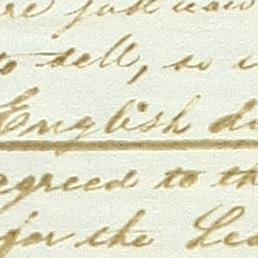 just now
to sell, so
English
agreed to th
for the